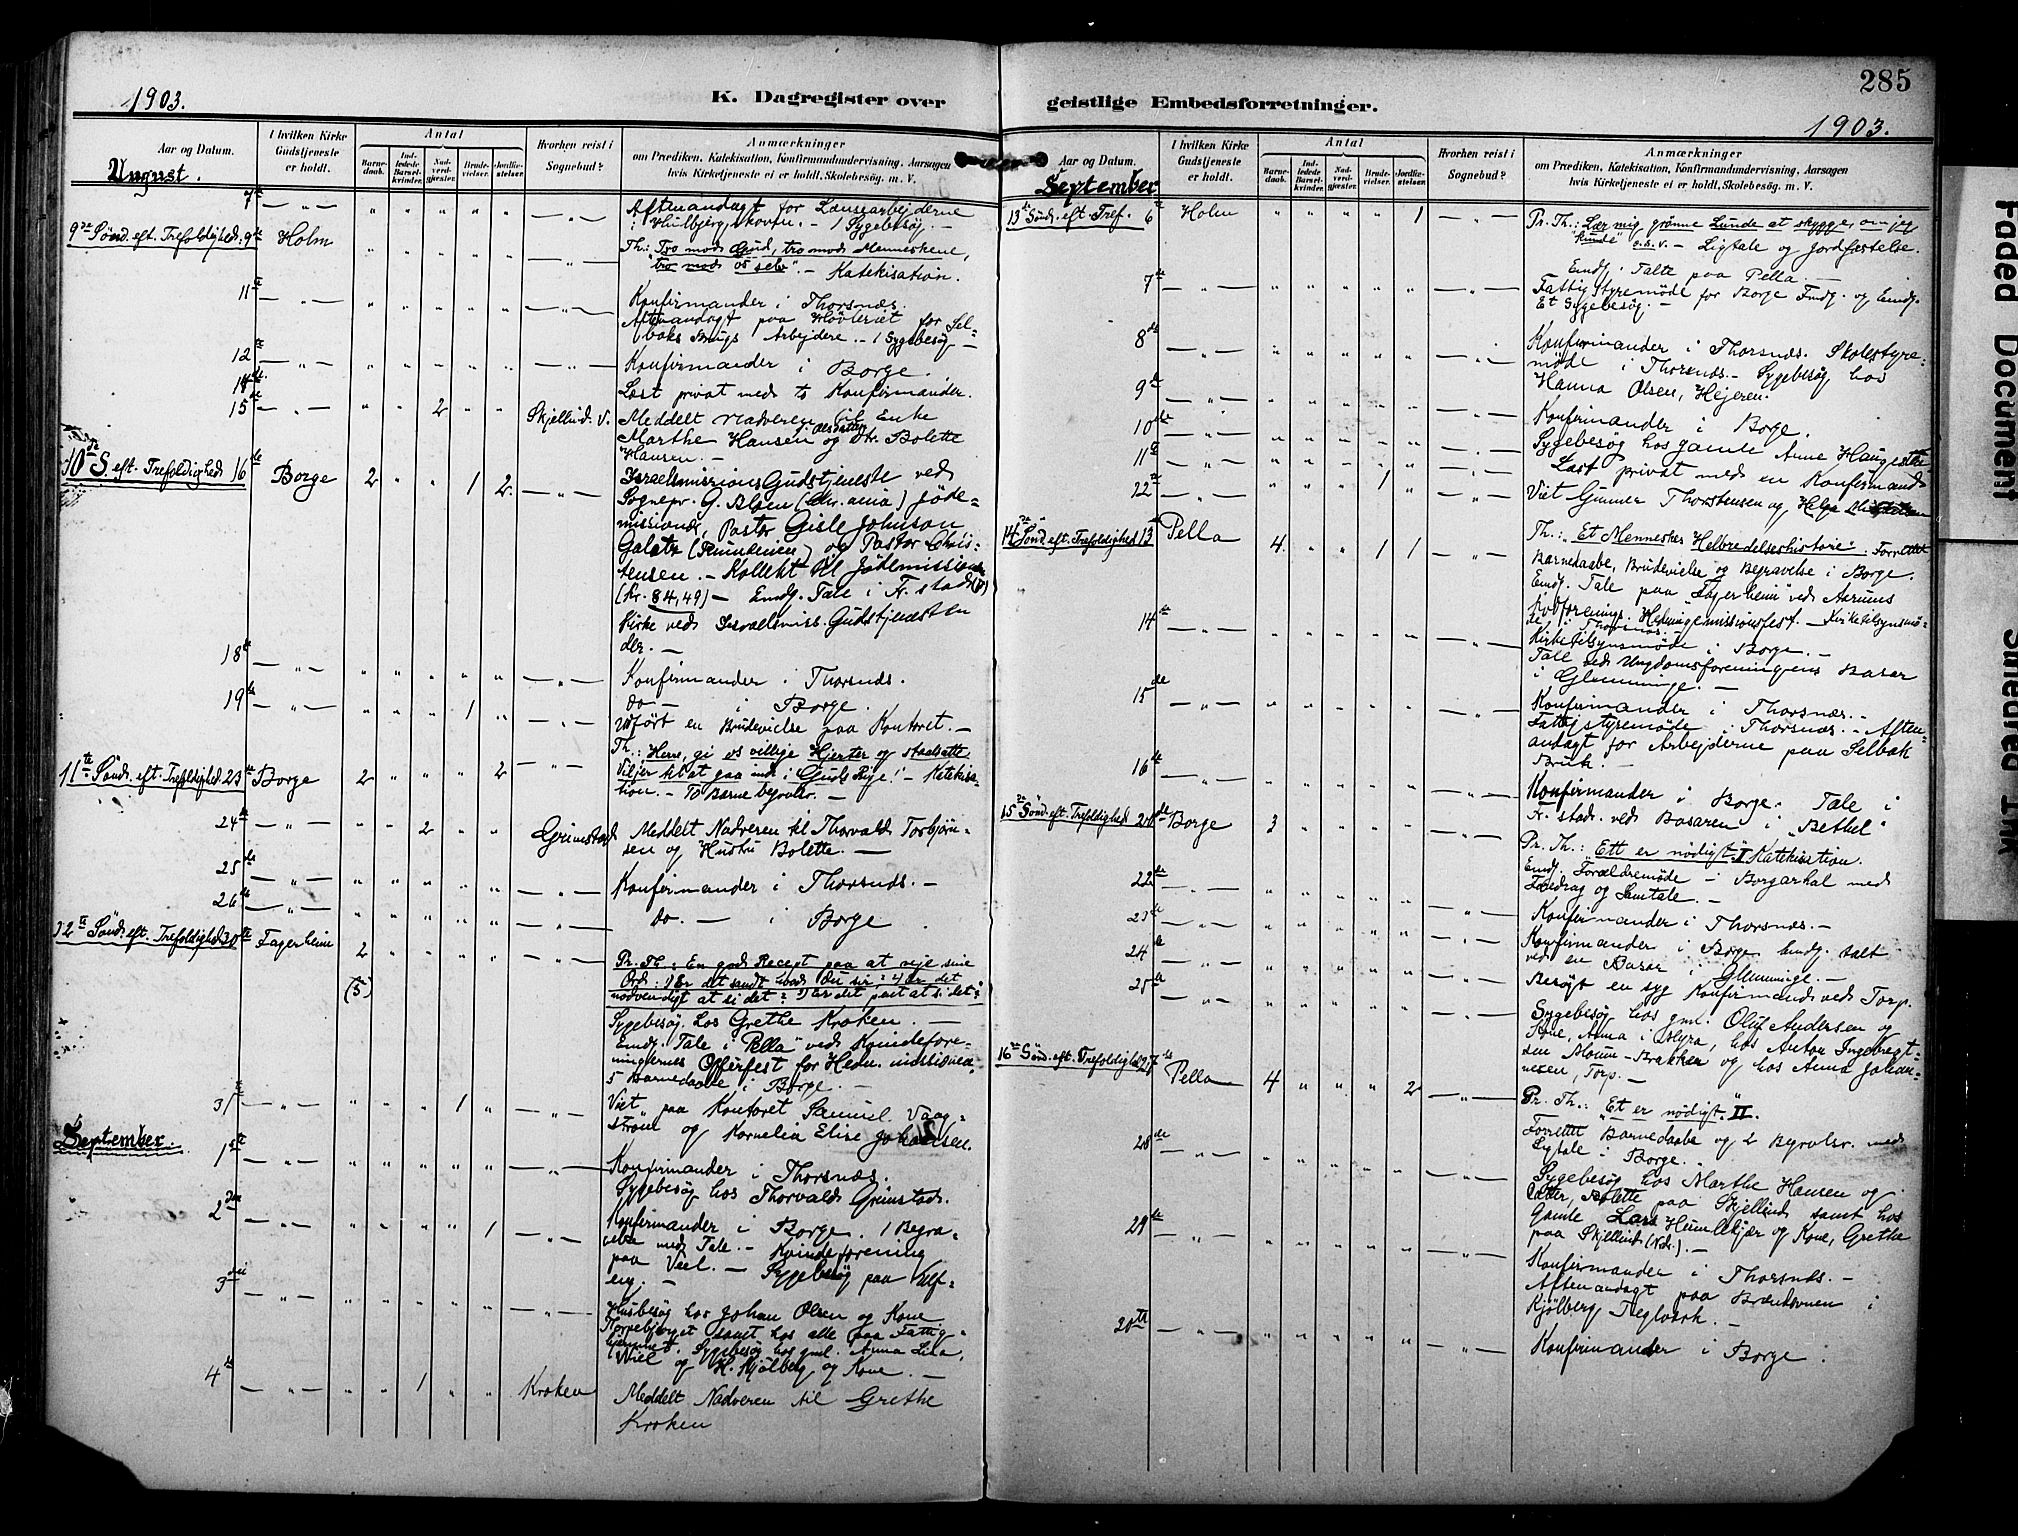 285
1903.
K. Dagregister over
geistlige Embedsforretninger.
1903.
Aar og Datum.
I hvilken Kirke Gudstjeneste er holdt.
Antal
Barnedaab.
Indledede Barselkvinder.
Nadverdgjester.
Brudevielser.
Jordfæstelser.
Hvorhen reist i Sognebud?
Anmærkninger
om Prædiken, Katekisation, Konfirmandundervisning, Aarsagen
hvis Kirketjeneste ei er holdt, Skolebesøg. m. V.
August.
7de
Aftenandagt for Lænsearbejderne
1 Sygebesøg.
9de Sønd. eft. Trefoldighed: 9de Holm
Th.: Tro mod Gud, tro mod Menneskene,
"tro mod os selv" - Katekisation.
11te
Konfirmander i Thorsnæs.
Aftenandagt paa Høvleriet for Sel=
baks Brugs Arbejdere. - 1 Sygebesøg -
12te
Konfirmander i Borge.
14de
Læst privat med to Konfirmander.
15de 2 Skjellind. V.
Meddelt Nadveren til Enke
Marthe Hansen og Dtr. Bolette
Hansen. -
10de S. eft. Trefoldighed 16de Borge 2 1 2
Israelsmissions Gudstjeneste ved
Sognepr. G. Blom (Chr.ania) Jøde=
missionær, Pastor Gisle Johnson
Galatz (Rumænien) og Pastor Chris=
tensen. - Kollekt til Jødemissionen
(Kr. 84,49) - Emdg. Tale i Fr.stad
Kirke ved Israelsmiss. Gudstjenesten
der. -
18de
Konfirmander i Thorsnæs.
19de 1
do - i Borge.
Udført en Brudevielse paa Kontoret. -
11te Sønd. eft. Trefoldighed 23de Borge 2 2
Th.: Herre, gi os villige Hjerter og stadsatte
Viljer til at gaa ind i Guds Rige! - Katekisa=
tion. - To Barnebegrvlsr. -
24de 2 Grimstad
Meddelt Nadveren til Thorvald Torbjørn=
sen og Hustru Bolette. -
25de
Konfirmander i Thorsnæs. -
26de
do. - i Borge
12te Sønd. eft. Trefoldighed 30te Fagerheim 2
(5)
Pr. Th.: En god Recept paa at veje sine
Ord: 1) Er det sandt hvad du sir;
nødvendigt at si det?
Sygebesøg hos Grethe Kroken. -
Emdg. Tale i "Pella" ved Kvindefore=
ningernes Offerfest for Hedn. missionen,
5 Barnedaabe i Borge. -
31te 1
Viet paa Kontoret Samuel Vaag=
strøm og Kornelia Elise Johansen.
September.
1ste
Konfirmander i Thorsnæs.
Sygebesøg hos Thorvald Grimstad.
2den 1
Konfirmander i Borge. 1 Begra=
velse med Tale. - Kvindeforening
paa Viel. - Sygebesøg paa Elf=
eng. -
3die
Husbesøg hos Johan Olsen og Kone
Torvebjerget samt hos alle paa Fattig=
hjemmet. Sygebesøg hos gml. Anna Lisa,
Wiel og H. Kjølberg og Kone. -
4de 1 Kroken
Meddelt Nadveren til Grethe
Kroken
Aar og Datum.
I hvilken Kirke Gudstjeneste er holdt.
Antal
Barnedaab.
Indledede Barselkvinder.
Nadverdgjester.
Brudevielser.
Jordfæstelser.
Hvorhen reist i Sognebud?
Anmærkninger
om Prædiken, Katekisation, Konfirmandundervisning, Aarsagen
hvis Kirketjeneste ei er holdt, Skolebesøg. m. V.
September
13de Sønd. eft. Tref. 6te Holm 1
Pr. Th.: Lær mig grønne Lunde at skygge, om jeg
"kunde" o.s.v. - Ligtale og Jordfæstelse.
Emdg. Talte paa Pella. -
7de
Fattigstyremøde for Borge Fmdg. og Emdg.
Et Sygebesøg. -
8de
Konfirmander i Thorsnæs. Skolestyre=
møde i Thorsnæs. - Sygebesøg hos
Hanna Olsen, Hejeren.
9de
Konfirmander i Borge.
10de
Sygebesøg hos gamle Anne Haugesten
11te
Læst privat med en Konfirmand
12te 1
Viet Gunner Thorstensen og Helga
14de Sønd. eft. Trefoldighed 13de Pella 4 1 1
Th.: "Et Menneskes Helbredelseshistorie". Forrettet
Barnedaabe, Brudevielse og Begravelse i Borge.
Emdg. Tale paa Fagerheim ved Aarums
Kvdforenings Hedningemissionsfest. - Kirketilsynsmø=
de i Thorsnæs.
14de
Kirketilsynsmøde i Borge. -
Tale ved Ungdomsforeningens Basar
i Glemminge. -
15de
Konfirmander i Thorsnæs. -
Fattigstyremøde i Thorsnæs. - Aften=
andagt for Arbejderne paa Selbak
Bruk. -
16de
Konfirmander i Borge. Tale i
Fr.stad ved Basaren i "Bethel"
15de Sønd. eft. Trefoldighed 20de Borge 3
Pr. Th.: Ett er nødigt. I Katekisation.
Emdg. Forældremøde i Borgarhal med
Foredrag og Samtale. -
22de
Konfirmander i Thorsnæs. -
23de
Konfirmander i Borge. Emdg. talt
ved en Basar i Glemminge. -
24de
Besøgt en syg Konfirmand ved Torp.
25de
Sygebesøg hos gml. Oluf Andersen og
Kone, Anna i Olyra, hos Anton Ingebregt=
sen Moum-Brakker og hos Anna Johan=
nesen, Torp. -
16de Sønd. eft. Trefoldighed 27de Pella 4 2
Pr. Th.: "Et er nødigt." II.
Forrettet Barnedaabe og 2 Bgrvlsr. med
Ligtale i Borge.
28de
Sygebesøg hos Marthe Hansen og
Datter, Bolette paa Skjellind samt hos
Gamle Lars Humlekjær og Kone, Grethe
paa Skjellind (Ndr.). -
29de
Konfirmander i Thorsnæs. -
Aftenandagt paa Brændovnen i
Kjølberg Teglværk. -
30te
Konfirmander i Borge.
Faded Document